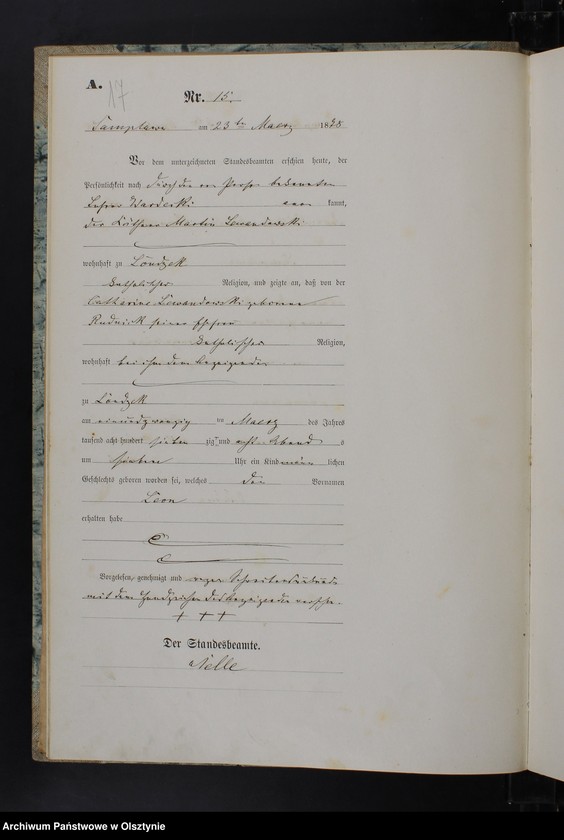 A.
17
Nr. 15.
Samplawa am 23ten Maerz 1878
Vor dem unterzeichneten Standesbeamten erschien heute, der
Persönlichkeit nach durch den von Person bekannten
Lehrer kannt,
der Käthner Martin Lewandowski
wohnhaft zu Londzek
katholischer Religion, und zeigte an, daß von der
Catharina Lewandowski geborene
Rudnick seiner Ehefrau
katholischer Religion,
wohnhaft bei ihm dem Anzeigenden
zu Londzek
am einundzwanzig ten Maerz des Jahres
tausend acht hundert sieben zig und acht Abends
um sieben Uhr ein Kind männ lichen
Geschlechts geboren worden sei, welches den Vornamen
Leon
erhalten habe
Vorgelesen, genehmigt und wegen
mit dem Handzeichen des Anzeigenden versehen.
+ + +
Der Standesbeamte.
Nelle
Archiwum Państwowe w Olsztynie